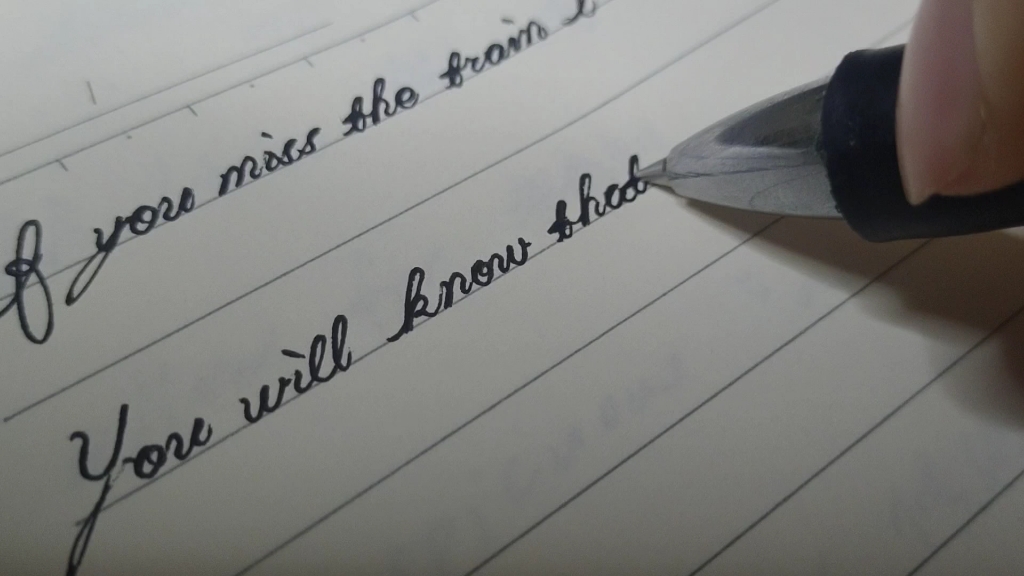 If you miss the train
You will know that